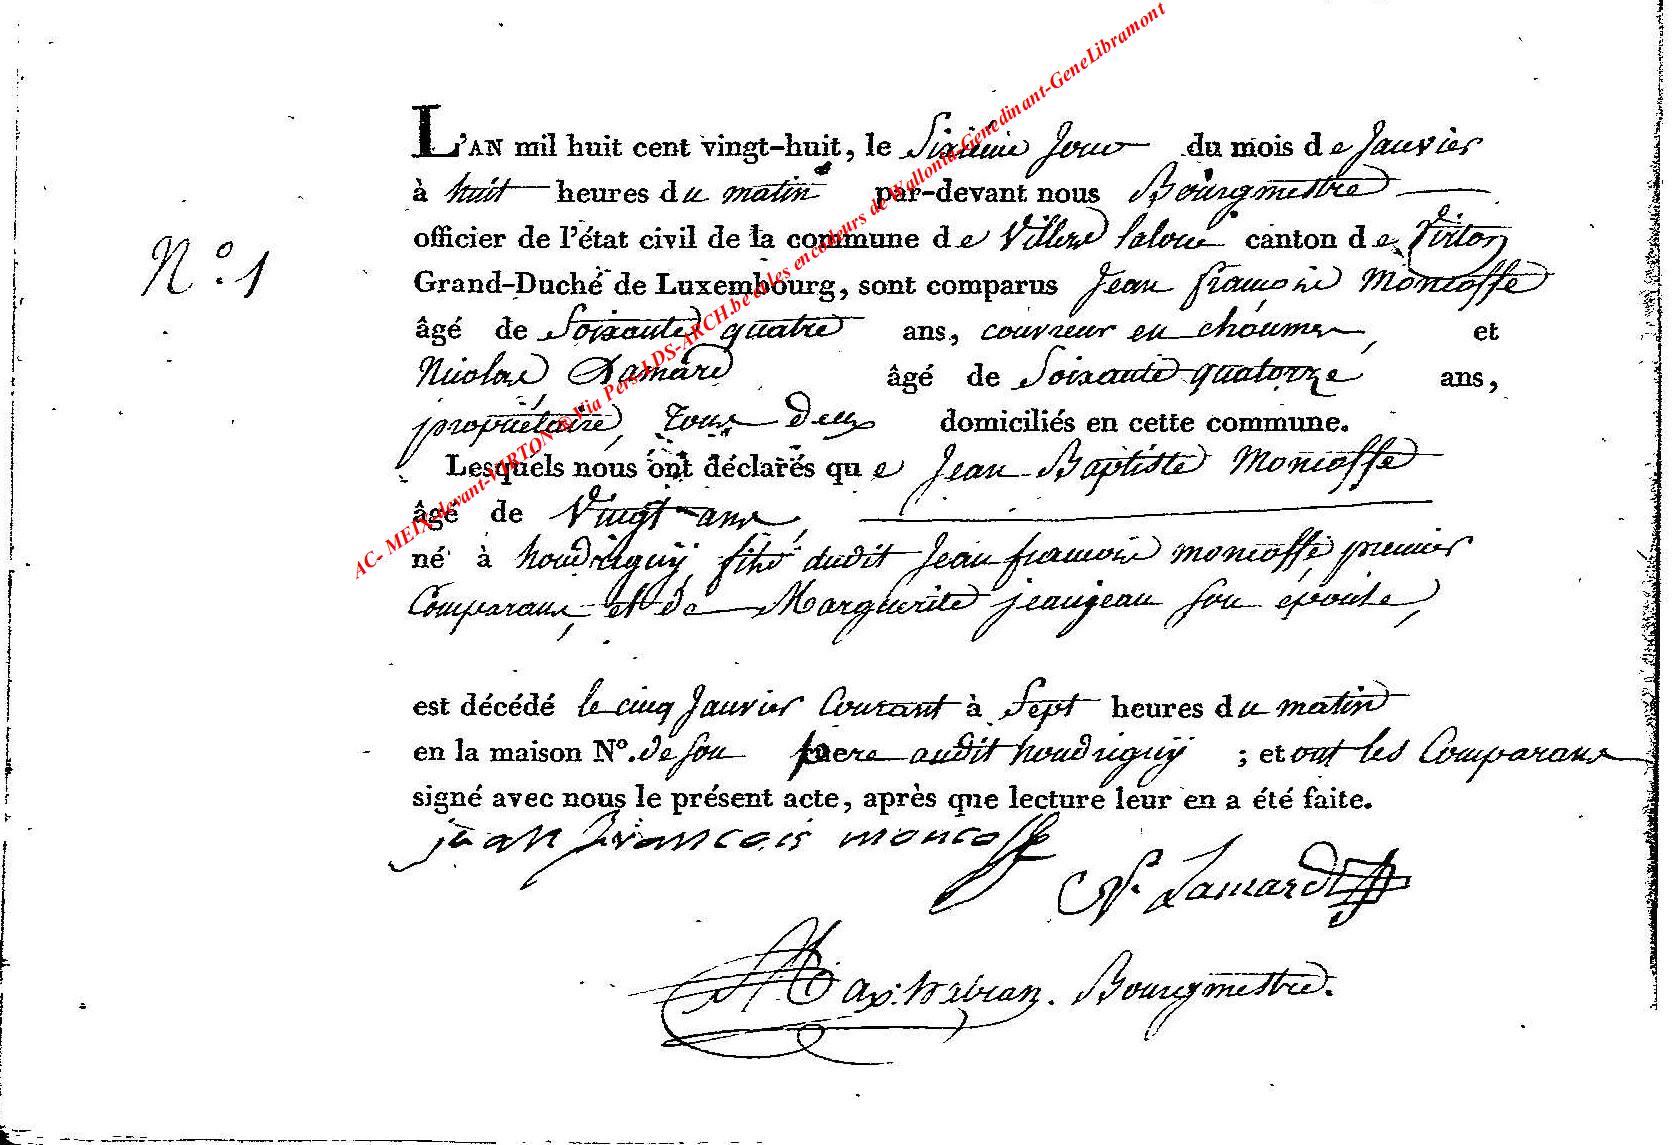 N.º 1
L'AN mil huit cent vingt-huit, le Sixième Jour du mois de Janvier
à huit heures du matin par-devant nous Bourgmestre
officier de l'état civil de la commune de Villers laloue canton de Virton
Grand-Duché de Luxembourg, sont comparus Jean françois Moncoffe
âgé de Soixante quatre ans, couvreur en chaume, et
Nicolas Lamard âgé de Soixante quatorze ans,
propriétaire, tous deux domiciliés en cette commune.
Lesquels nous ont déclarés que Jean Baptiste Moncoffe
âgé de Vingt ans,
né à houdrigny, fils dudit Jean françois moncoffe premier
Comparans, et de Marguerite jeanjean son épouse,
est décédé le cinq Janvier Courant à Sept heures du matin
en la maison Nº. de son pere audit houdrigny ; et ont les Comparans
signé avec nous le présent acte, après que lecture leur en a été faite.
jean francois moncoffe
N. Lamard
Bourgmestre.
AC- MEIX-devant-VIRTON ® Via Pers-LDS-ARCH.be et les encodeurs de Wallonia-Genedinant-GeneLibramont